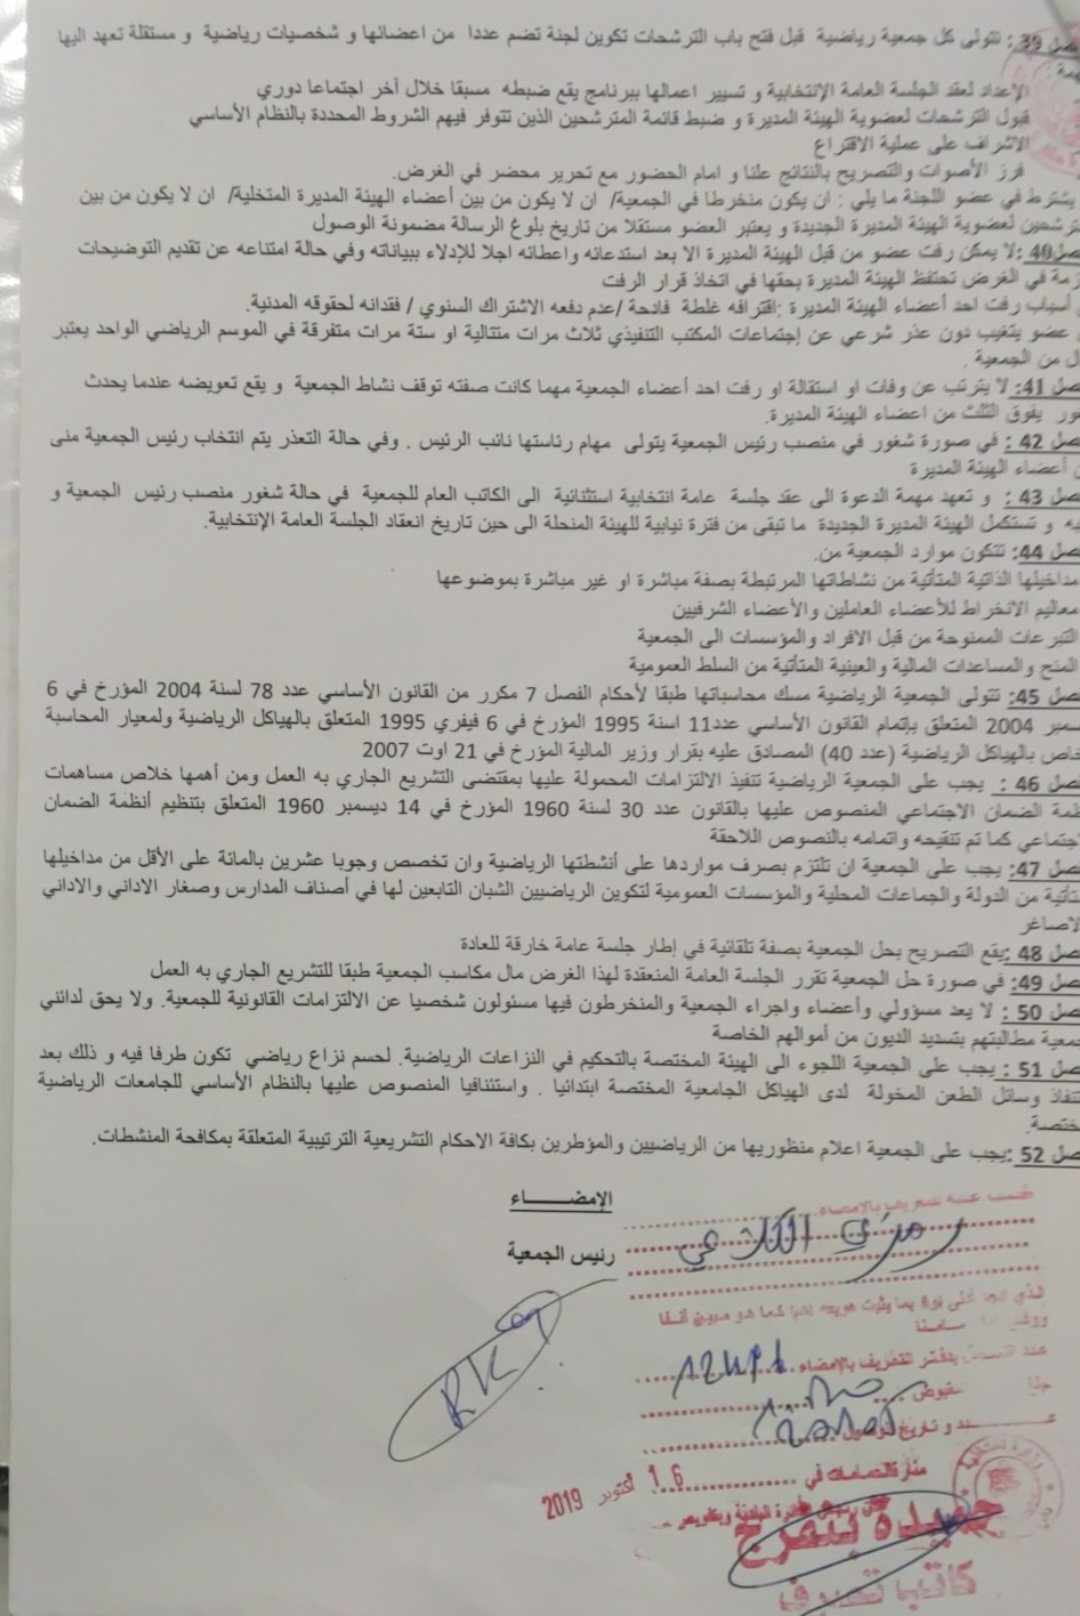 صل 39 : تتولى كل جمعية رياضية قبل فتح باب الترشحات تكوين لجنة تضم عددا من اعضائها و شخصيات رياضية و مستقلة تعهد اليها
همة :
الإعداد لعقد الجلسة العامة الإنتخابية و تسيير اعمالها ببرنامج يقع ضبطه مسبقا خلال آخر اجتماعا دوري
قبول الترشحات لعضوية الهيئة المديرة و ضبط قائمة المترشحين الذين تتوفر فيهم الشروط المحددة بالنظام الأساسي
الاشراف على عملية الاقتراع
فرز الأصوات والتصريح بالنتائج علنا و امام الحضور مع تحرير محضر في الغرض.
يشترط في عضو اللجنة ما يلي : ان يكون منخرطا في الجمعية/ ان لا يكون من بين أعضاء الهيئة المديرة المتخلية/ ان لا يكون من بين
ترشحين لعضوية الهيئة المديرة الجديدة و يعتبر العضو مستقلا من تاريخ بلوغ الرسالة مضمونة الوصول
صل40 :لا يمكن رفت عضو من قبل الهيئة المديرة الا بعد استدعائه واعطائه اجلا للإدلاء ببياناته وفي حالة امتناعه عن تقديم التوضيحات
زمة في الغرض تحتفظ الهيئة المديرة بحقها في اتخاذ قرار الرفت
أسباب رفت احد أعضاء الهيئة المديرة :إقترافه غلطة فادحة /عدم دفعه الاشتراك السنوي / فقدانه لحقوقه المدنية.
عضو يتغيب دون عذر شرعي عن إجتماعات المكتب التنفيذي ثلاث مرات متتالية او ستة مرات متفرقة في الموسم الرياضي الواحد يعتبر
ل من الجمعية .
صل 41: لا يترتب عن وفات او استقالة او رفت احد أعضاء الجمعية مهما كانت صفته توقف نشاط الجمعية و يقع تعويضه عندما يحدث
ور يفوق الثلث من اعضاء الهيئة المديرة.
صل 42 : في صورة شغور في منصب رئيس الجمعية يتولى مهام رئاستها نائب الرئيس . وفي حالة التعذر يتم انتخاب رئيس الجمعية منى
أعضاء الهيئة المديرة
صل 43 : و تعهد مهمة الدعوة الى عقد جلسة عامة انتخابية استثنائية الى الكاتب العام للجمعية في حالة شغور منصب رئيس الجمعية و
يه و تستكمل الهيئة المديرة الجديدة ما تبقى من فترة نيابية للهيئة المنحلة الى حين تاريخ انعقاد الجلسة العامة الإنتخابية.
صل 44: تتكون موارد الجمعية من.
مداخيلها الذاتية المتأتية من نشاطاتها المرتبطة بصفة مباشرة او غير مباشرة بموضوعها
معاليم الانخراط للأعضاء العاملين والأعضاء الشرفيين
التبرعات الممنوحة من قبل الافراد والمؤسسات الى الجمعية
المنح والمساعدات المالية والعينية المتأتية من السلط العمومية
صل 45: تتولى الجمعية الرياضية مسك محاسباتها طبقا لأحكام الفصل 7 مكرر من القانون الأساسي عدد 78 لسنة 2004 المؤرخ في 6
سمبر 2004 المتعلق بإتمام القانون الأساسي عدد11 اسنة 1995 المؤرخ في 6 فيفري 1995 المتعلق بالهياكل الرياضية ولمعيار المحاسبة
خاص بالهياكل الرياضية (عدد 40) المصادق عليه بقرار وزير المالية المؤرخ في 21 اوت 2007
صل 46 : يجب على الجمعية الرياضية تنفيذ الالتزامات المحمولة عليها بمقتضى التشريع الجاري به العمل ومن أهمها خلاص مساهمات
ظمة الضمان الاجتماعي المنصوص عليها بالقانون عدد 30 لسنة 1960 المؤرخ في 14 ديسمبر 1960 المتعلق بتنظيم أنظمة الضمان
جتماعي كما تم تنقيحه واتمامه بالنصوص اللاحقة
صل 47: يجب على الجمعية ان تلتزم بصرف مواردها على أنشطتها الرياضية وان تخصص وجوبا عشرين بالمائة على الأقل من مداخيلها
تأتية من الدولة والجماعات المحلية والمؤسسات العمومية لتكوين الرياضيين الشبان التابعين لها في أصناف المدارس وصغار الاداني والاداني
لاصاغر
صل 48 :يقع التصريح بحل الجمعية بصفة تلقائية في إطار جلسة عامة خارقة للعادة
صل 49: في صورة حل الجمعية تقرر الجلسة العامة المنعقدة لهذا الغرض مال مكاسب الجمعية طبقا للتشريع الجاري به العمل
صل 50 : لا يعد مسؤولي وأعضاء واجراء الجمعية والمنخرطون فيها مسئولون شخصيا عن الالتزامات القانونية للجمعية. ولا يحق لدائني
جمعية مطالبتهم بتسديد الديون من أموالهم الخاصة
صل 51 : يجب على الجمعية اللجوء الى الهيئة المختصة بالتحكيم في النزاعات الرياضية. لحسم نزاع رياضي تكون طرفا فيه و ذلك بعد
تنفاذ وسائل الطعن المخولة لدى الهياكل الجامعية المختصة ابتدائيا . واستئنافيا المنصوص عليها بالنظام الأساسي للجامعات الرياضية
ختصة.
صل 52 :يجب على الجمعية اعلام منظوريها من الرياضيين والمؤطرين بكافة الاحكام التشريعية الترتيبية المتعلقة بمكافحة المنشطات.
الإمضـــــاء
رئيس الجمعية
رمزي الكلاعي
RK
بدفتر التعريف بالإمضاء
و تاريخ الوصول
في 16 أكتوبر 2019
حميدة بنفرج
كاتب تصرف